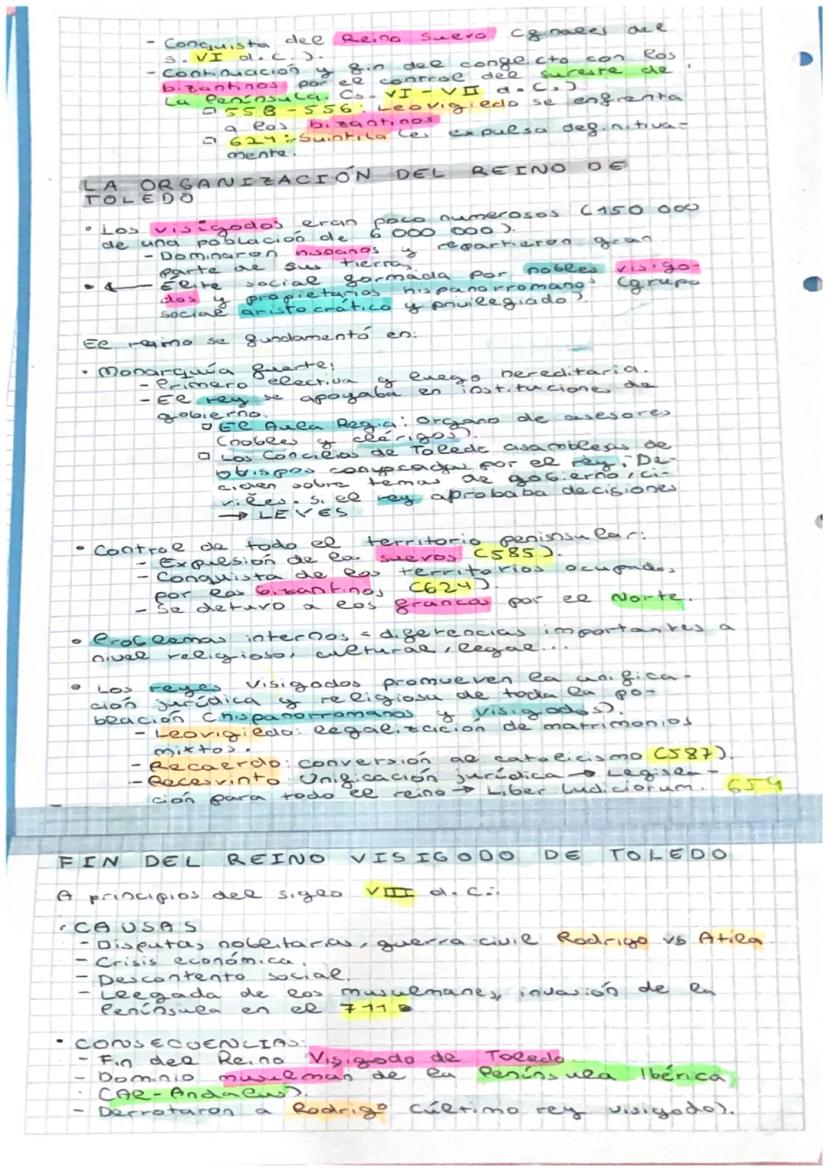 - Conquista del Reino Suevo (finales del
s. VI d.C.).
- Continuación y fin del conflicto con los
bizantinos por el control del sureste de
la Península. (s. VI - VII d.C.)
558 - 556: Leovigildo se enfrenta
a los bizantinos
624: Suintila les expulsa definitiva=
mente.
LA ORGANIZACIÓN DEL REINO DE
TOLEDO
• Los visigodos eran poco numerosos (150 000
de una población de 6 000 000).
- Dominaron hispanos y repartieron gran
parte de sus tierras
• ← Élite social formada por nobles visigo-
dos y propietarios hispanorromanos (grupo
social aristocrático y privilegiado).
El reino se fundamentó en:
• Monarquía fuerte:
- Primero electiva y luego hereditaria.
- El rey se apoyaba en instituciones de
gobierno.
El Aula Regia: órgano de asesores
(nobles y clérigos).
Los Concilios de Toledo asambleas de
obispos convocadas por el rey. De-
ciden sobre temas de gobierno, ci-
viles. si el rey aprobaba decisiones
→ LEYES
• Control de todo el territorio peninsular:
- Expulsión de los suevos (585).
- Conquista de los territorios ocupados
por los bizantinos (624)
- Se detuvo a los francos por el Norte.
• Problemas internos = diferencias importantes a
nivel religioso, cultural, legal...
• Los reyes visigodos promueven la unifica-
ción jurídica y religiosa de toda la po-
blación (hispanorromanos y visigodos).
- Leovigildo: legalización de matrimonios
mixtos.
- Recaredo: conversión al catolicismo (587).
- Recesvinto: Unificación jurídica → Legisla-
ción para todo el reino → Liber Iudiciorum. 654
FIN DEL REINO VISIGODO DE TOLEDO
A principios del siglo VIII d.C.:
• CAUSAS
- Disputas nobiliarias, guerra civil Rodrigo vs Atila
- Crisis económica.
- Descontento social.
- Llegada de los musulmanes, invasión de la
Península en el 711.
• CONSECUENCIAS:
- Fin del Reino Visigodo de Toledo.
- Dominio musulmán de la Península Ibérica
(Al-Andalus).
- Derrotaron a Rodrigo (último rey visigodo).